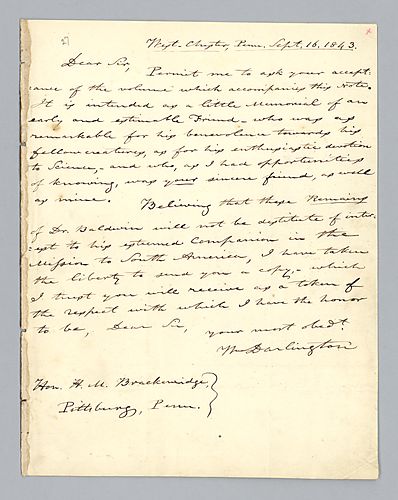 West-Chester, Penn. Sept. 16, 1843.
Dear Sir,
Permit me to ask your accept-
ance of the volume which accompanies this Note.
It is intended as a little Memorial of an
early and estimable Friend - who was as
remarkable for his benevolence towards his
fellow creatures, as for his enthusiastic devotion
to Science, - and who, as I had opportunities
of knowing, was your sincere friend, as well
as mine. Believing that these Remains
of Dr. Baldwin will not be destitute of inter-
est to his esteemed Companion in the
Mission to South America, I have taken
the liberty to send you a copy, - which
I trust you will receive as a token of
the respect with which I have the honor
to be, Dear Sir,
your most obedt.
Wm Darlington
Hon. H. M. Brackenridge,
Pittsburg, Penn.